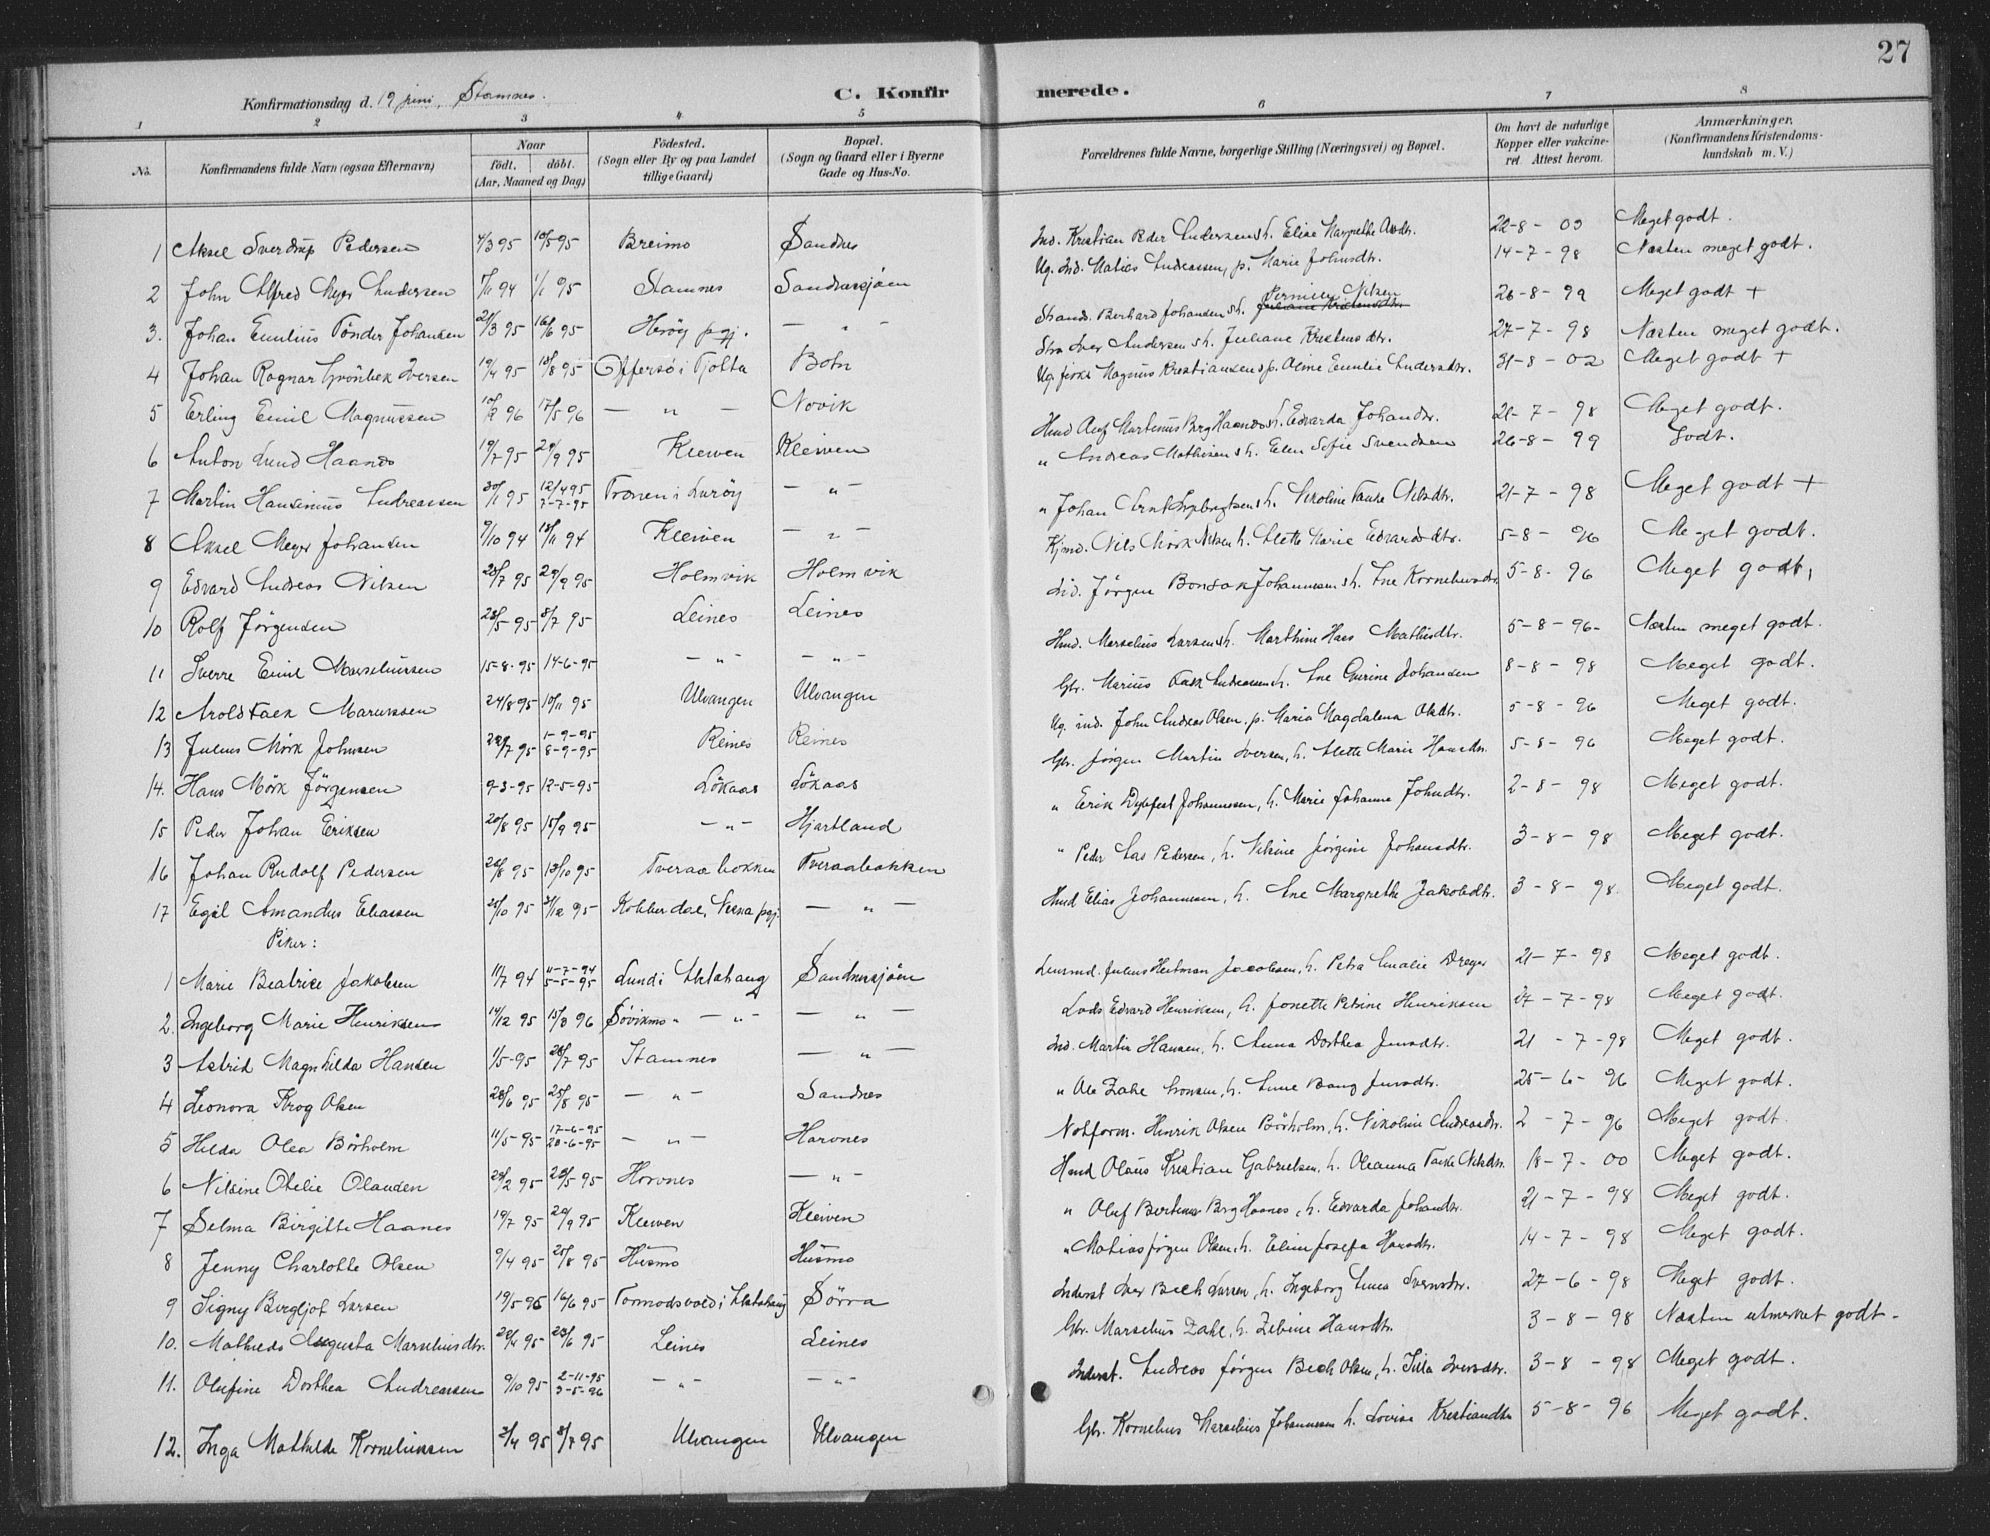 27
Konfirmationsdag d. 19 juni, Stamnes.
C. Konfirmerede.
1 2 3 4 5 6 7 8
No.
Konfirmandens fulde Navn (ogsaa Efternavn)
Naar
födt. döbt.
(Aar, Maaned og Dag)
Födested.
(Sogn eller By og paa Landet
tillige Gaard)
Bopæl.
(Sogn og Gaard eller i Byerne
Gade og Hus-No.
Forældrenes fulde Navne, borgerlige Stilling (Næringsvei) og Bopæl.
Om havt de naturlige
Kopper eller vakcine-
ret. Attest herom.
Anmærkninger.
(Konfirmandens Kristendoms-
kundskab m. V.)
1 Aksel Sverdrup Pedersen 4/3 95 10/5 95 Breimo Sandnes Ind. Kristian Peder Andersen h. Elise Margrethe 22-8-00 Meget godt.
2 John Alfred Meyer Andersen 94 1/1 95 Stamnes Sandnessjöen Ug. Ind. Matias Andreassen, p. Marie Johnsdtr. 14-7-98 Næsten meget godt.
3. Johan Emilius Tönder Johansen 21/3 95 16/6 95 Heröy pgj. — " — Strands. Berhard Johansen h. Pernille Nilsen 26-8-99 Meget godt +
4 Johan Ragnar Grönbek Iversen 19/4 95 18/8 95 Offersö i Tjötta Botn Iver Andersen h. Juliane Kristensdtr. 27-7-98 Næsten meget godt.
5 Erling Emil Magnussen 96 17/5 96 — " — Novik Ug. fisker Magnus Kristiansen p. Oline Emilie Andersdtr. 31-8-02 Meget godt +
6 Anton Lund Haanes 19/7 95 29/9 95 Kleiven Kleiven Hmd Martinus Berg Haanes h. Edvarda Johansdtr. 21-7-98 Meget godt.
7 Martin Hansinius Andreassen 30/1 95 12/4 95 7-7-95 Trænen i Luröy — " — " Andreas Mathisen h. Elen Sofie Svendsen 26-8-99 Godt.
8 Aksel Meyer Johansen 9/10 94 18/11 94 Kleiven — " — " Johan Arnt h. Nikoline Fauske Nilsdtr. 21-7-98 Meget godt +
9 Edvard Andreas Nilsen 28/7 95 29/9 95 Holmvik Holmvik Kjmd. Nils Mörk Nilsen h. Alette Marie Edvardsdtr. 5-8-96 Meget godt.
10 Rolf Jörgensen 28/5-95 8/7 95 Leines Leines Ind. Jörgen Bonsak Johannesen h. Ane Korneliusdtr. 5-8-96 Meget godt.
11 Sverre Emil Marseliussen 15-8-95 14-6-95 — " — — " — Hmd. Marselius Larsen h. Marthine Hass Mathisdtr. 5-8-96- Næsten meget godt.
12 Arold Falk Mariussen 24/8 95 10/11 95 Ulvangen Ulvangen Gbr. Marius Falk Andreassen h. Ane Gurine Johansen 8-8-98 Meget godt.
13 Julius Mörk Johnsen 28/7 95 1-9-95 8-9-95 Reines Reines Ug. ind. John Andreas Olsen, p. Maria Magdalena Olsdtr. 5-8-96 Meget godt.
14. Hans Mörk Jörgensen 9-3-95 12-5-95 Lökaas Lökaas Gbr. Jörgen Martin Iversen, h. Alette Marie Hansdtr. 5-8-96 Meget godt.
15 Peder Johan Eriksen 20/8 95 15/9 95 — " — Hjartland " Erik Dybfest Johannessen, h. Marie Johanne Johnsdtr. 2-8-98 Meget godt.
16 Johan Rudolf Pedersen 26/8 95 13/10 95 Tveraabakken Tveraabakken " Peder Laas Pedersen, h. Nilsine Jörgine Johansdtr. 3-8-98 Meget godt.
17 Egil Amandus Eliassen 25/10 95 31/12 95 Kobberdal, Nesna pgj. — " — Hmd Elias Johannesen, h. Ane Margrethe Jakobsdtr. 3-8-98. Meget godt.
Piker:
1 Marie Beatrice Jakobsen 11/7 94 11-7-94 5-5-95 Lund i Alstahaug Sandnessjöen Lensmd. Julius Heitman Jacobsen, h. Petra Amalie Dreyer 21-7-98 Meget godt.
2. Ingeborg Marie Henriksen 14/12 95 15/3 96 Sövikmo " — " — — " — Lods Edvard Henriksen, h. Jonette Petrine Henriksen 27-7-98 Meget godt.
3 Astrid Magnhilda Hansen 1/5-95 28/7 95 Stamnes — " — Ind. Martin Hansen, h. Anna Dorthea Jensdtr. 21-7-98 Meget godt.
4 Leonora Krog Olsen 28/6 95 25/8 95 — " — Sandnes " Ole Zahl Aronsen, h. Anne Bang Jensdtr. 25-6-96 Meget godt.
5 Hilda Olea Börholm 11/5-95 17-6-95 20-6-95 — " — Harvnes Notform. Henrik Olsen Börholm, h. Nikoline Andreasdtr. 2-7-96 Meget godt.
6 Nilsine Otelie Olausen 24/2 95 26/5-95 Horvnes — " — Hmd Olaus Kristian Gabrielsen, h. Oleanna Faske Nilsdtr. 18-7-00 Meget godt.
7 Selma Birgitte Haanes 19/7 95 29/9 95 Kleiven Kleiven " Oluf Bertinus Berg Haanes, h. Edvarda Johansdtr. 21-7-98 Meget godt.
8 Jenny Charlotte Olsen 9/4 95 25/8 95 Husmo Husmo " Matias Jörgen Olsen h. Elen Josefa Hansdtr. 14-7-98 Meget godt.
9 Signy Bergljot Larsen 19/5 95 16/6 95 Tormodsvold i Alstahaug Sörra Inderst Iver Bech Larsen, h. Ingeborg Anna Svensdtr. 27-6-98 Meget godt.
10. Mathilde Augusta Marseliusdtr. 22/4 95 23/6 95 Leines Leines Gbr. Marselius Dahl, h. Zebine Hansdtr. 3-8-98 Næsten utmerket godt-
11. Olufine Dorthea Andreassen 9/10 95 2-11-95 3-5-96 — " — — " — Inderst. Andreas Jörgen Bech Olsen, h. Silla Iversdtr. 3-8-98 Meget godt.
12. Inga Mathilde Korneliussen 3/4 95 8/7 95 Ulvangen Ulvangen Gbr. Kornelius Marselius Johannessen h. Lovise Kristiansdtr 5-8-96 Meget godt.